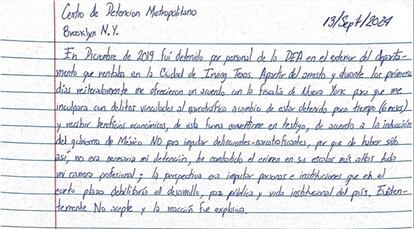 Centro de Detención Metropolitano
Brooklyn N.Y.
13/Sept/2024
En Diciembre de 2019 fui detenido por personal de la DEA en el exterior del departa-
mento que rentaba en la Ciudad de Irving Texas. Apartir del arresto y durante los primeros
días reiteradamente me ofrecieron un acuerdo con la fiscalía de Nueva York para que me
inculpara con delitos vinculados al narcotráfico a cambio de estar detenido poco tiempo (6 meses)
y recibir beneficios económicos, de esta forma convertirme en testigo, de acuerdo a la inducción
del gobierno de México NO para imputar delincuentes-narcotraficantes, por que de haber sido
así, no era necesaria mi detención, he combatido el crimen en sus escalas más altas toda
mi carrera profesional; la perspectiva era imputar personas e instituciones que en el
corto plazo debilitaría el desarrollo, paz pública y vida institucional del país. Eviden-
temente No acepte y la reacción fue explosiva.